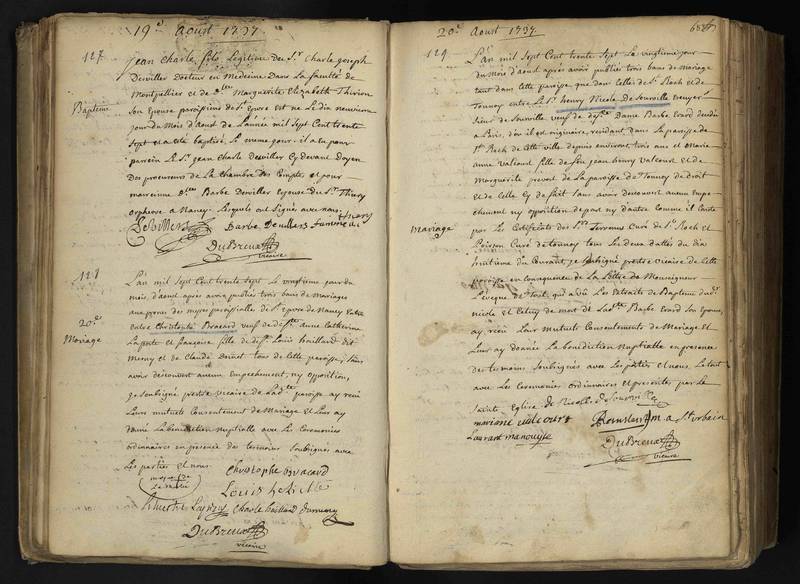 19.e Aoust 1737.
127
Baptême
Jean Charle fils Légitime du Sr. Charle Joseph
Desvillers Docteur en Medecine Dans La faculté de
Montpellier et de d.elle Marguerite Elizabeth Thirion
Son épouse paroissiens de St. epvre est né Le dix neuvieme
jour du Mois d'aoust de L'année mil Sept Cent trente
Sept et a eté baptisé Le meme jour. il a eu pour
parrein Le Sr. Jean Charle desvillers Cy devant Doyen
des procureurs de La Chambre des Comptes et pour
marreinne d.elle Barbe Desvillers epouse du Sr. Thiery
orphevre a Nancy Lesquels ont Signés avec nous
Desvillers Barbe Desvillers femme de Thiery
DuBreux
vicaire
128
20.e
Mariage
L'an mil Sept Cent trente Sept Le vingtieme jour du
mois d'aoust après avoir publiés trois bans de mariages
aux prones des messes paroissialles de St. epvre de Nancy Entre
entre Christophe Bracard veuf de anne Catherine
Laporte et françoise fille de Louis haillard dit
Meny et de Claude tous de Cette paroisse, Sans
avoir découvert aucun Empechement, ny opposition,
je Soubsigné prestre vicaire de Lad.te paroisse ay reçu
Leurs mutuels Consentement de Mariage et Leur ay
donné La benediction nuptialle avec Les Ceremonies
ordinaires en presence des temoins Soubsignés avec
Les parties et nous
marque de
Christophe bracard
Louis
Charle haillard dumeny
DuBreux
vicaire
20.e Aoust 1737.
129
Mariage
L'an mil Sept Cent trente Sept Le vingtieme jour
du Mois d'aoust après avoir publiés trois bans de Mariage
tant dans Cette paroisse que dans Celles de St. Roch et de
Tonnoy entre Le Sr. henry Nicole De Sourville Ecuyer
Sieur de Sourville veuf de Dame Barbe Erard décédée
a Paris, d'où il est originaire, residant dans La paroisse de
St. Roch de Cette ville depuis environ trois ans et Marie
anne Valcourt fille de feu jean henry valcourt et de
Marguerite prevost de La paroisse de Tonnoy de droit
et de Celle Cy de fait Sans avoir découvert aucun Empe-
chement ny opposition de part ny d'autre Comme il Conste
par Les Certificats des Srs. Curé de St. Roch et
Poirson Curé de tonnoy tous les deux dattés du dix
huitieme du Courant, je Soubsigné prestre vicaire de Cette
paroisse en Consequence de La Lettre de Monseigneur
L'evêque de Toul, qui a vû Les Extraits de Baptême dud.
nicole et Celuy de mort de Lad.te Barbe Erard Son epouse,
ay reçu Leur Mutuels Consentements de Mariage et
Leur ay donnée La benediction Nuptialle en presence
des temoins Soubsignés avec Les parties et nous Le tout
avec Les Ceremonies ordinaires et prescrites par La
Sainte Eglise De Nicolle De Sourville
mariane valcourt
a St urbain
Laurant manouisse
DuBreux
vicaire